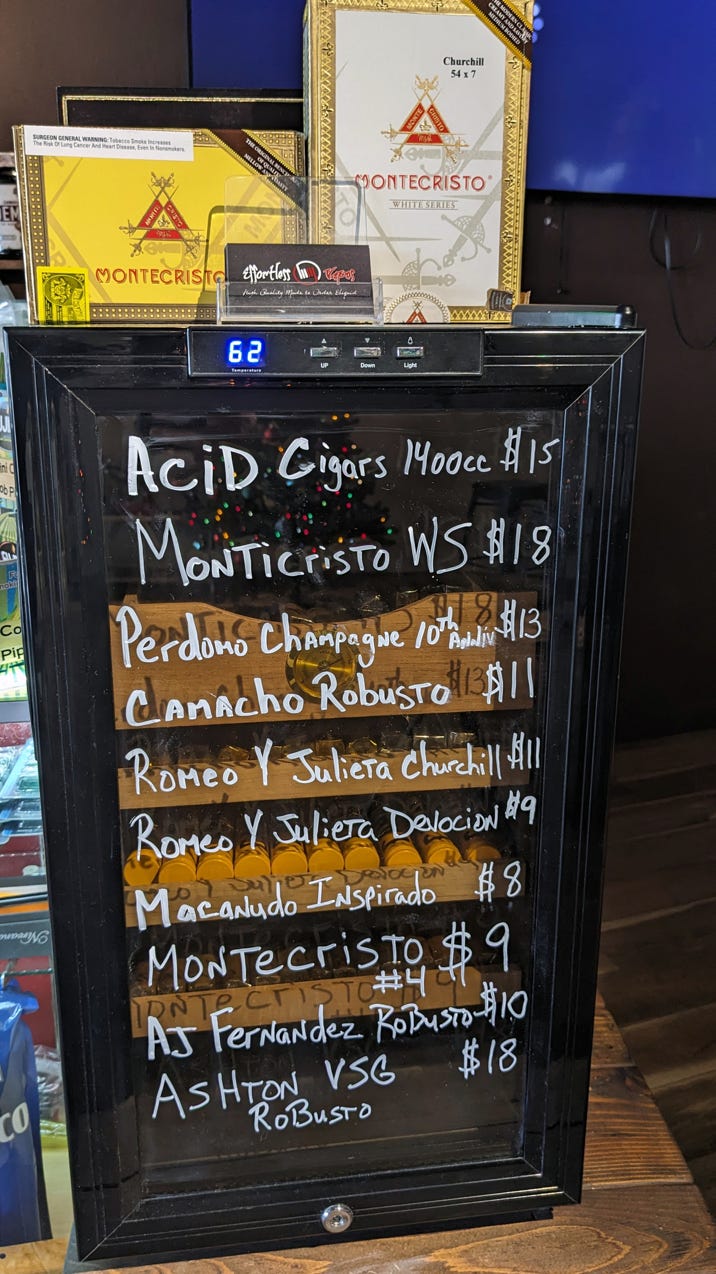 THE MODERN CLASSIC
CREAMY AND NUTTY
MEDIUM BODIED
Churchill
54 x 7
MONTE CRISTO
MONTECRISTO
WHITE SERIES
SURGEON GENERAL WARNING: Tobacco Smoke Increases
The Risk Of Lung Cancer And Heart Disease, Even In Nonsmokers.
MONTECRISTO
Effortless Vapes
High Quality Made to Order Eliquid
62
Temperature
UP Down Light
ACiD Cigars 1400cc $15
MONTiCRiSTO WS $18
Perdomo Champagne 10th Anniv $13
CAMACHO ROBUSTO $11
ROMEO Y JULIETA Churchill $11
ROMEO Y JULIETA DEVOCION $9
MACANUDO INSPIRADO $8
MONTECRISTO $9
#4
AJ FERNANDEZ ROBUSTO $10
ASHTON VSG $18
ROBUSTO